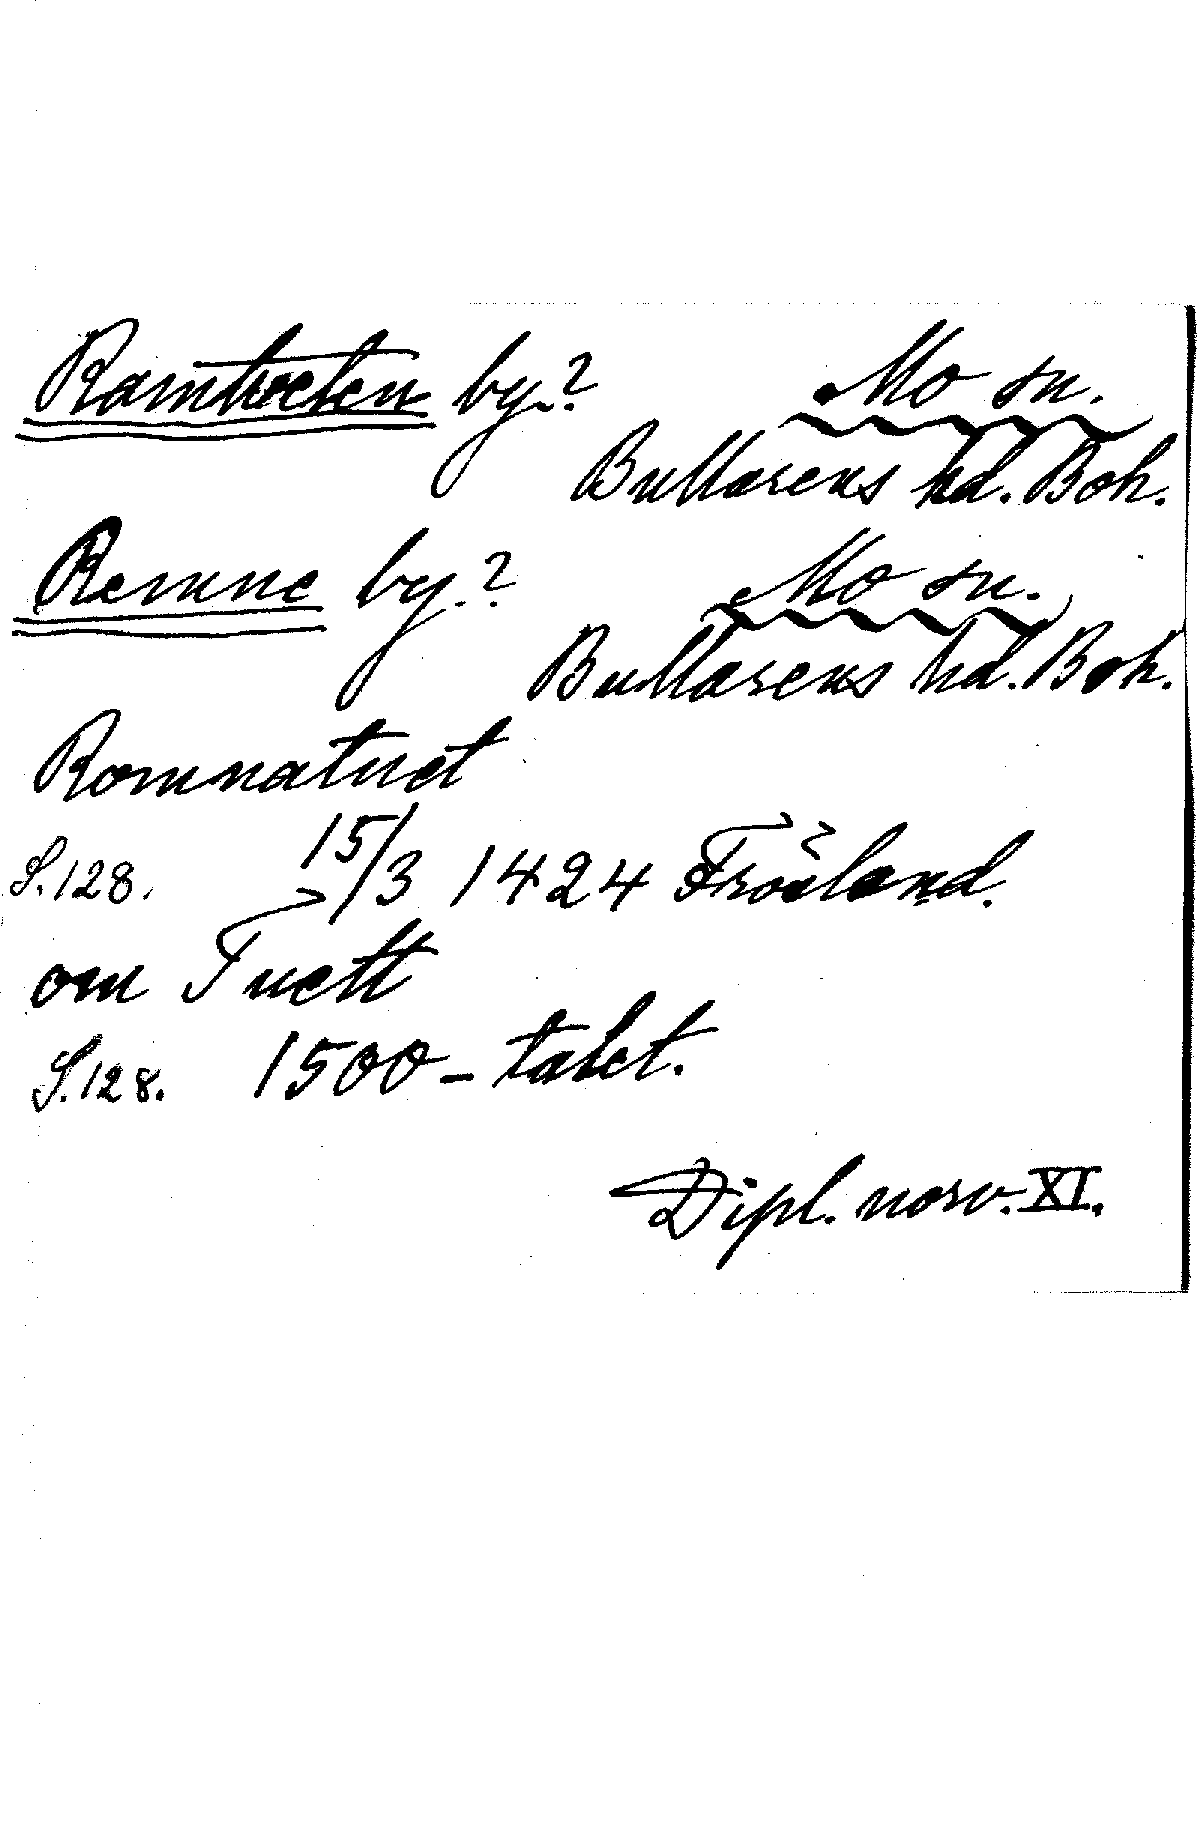 Ramtveten by? Mo sn.
Bullarens hd. Boh.
Remne by.? Mo sn.
Bullarens hd. Boh.
Romnatuet
S.128. 15/3 1424 Frösland.
om Tuett
S.128. 1500-talet.
Dipl. norv. XI.